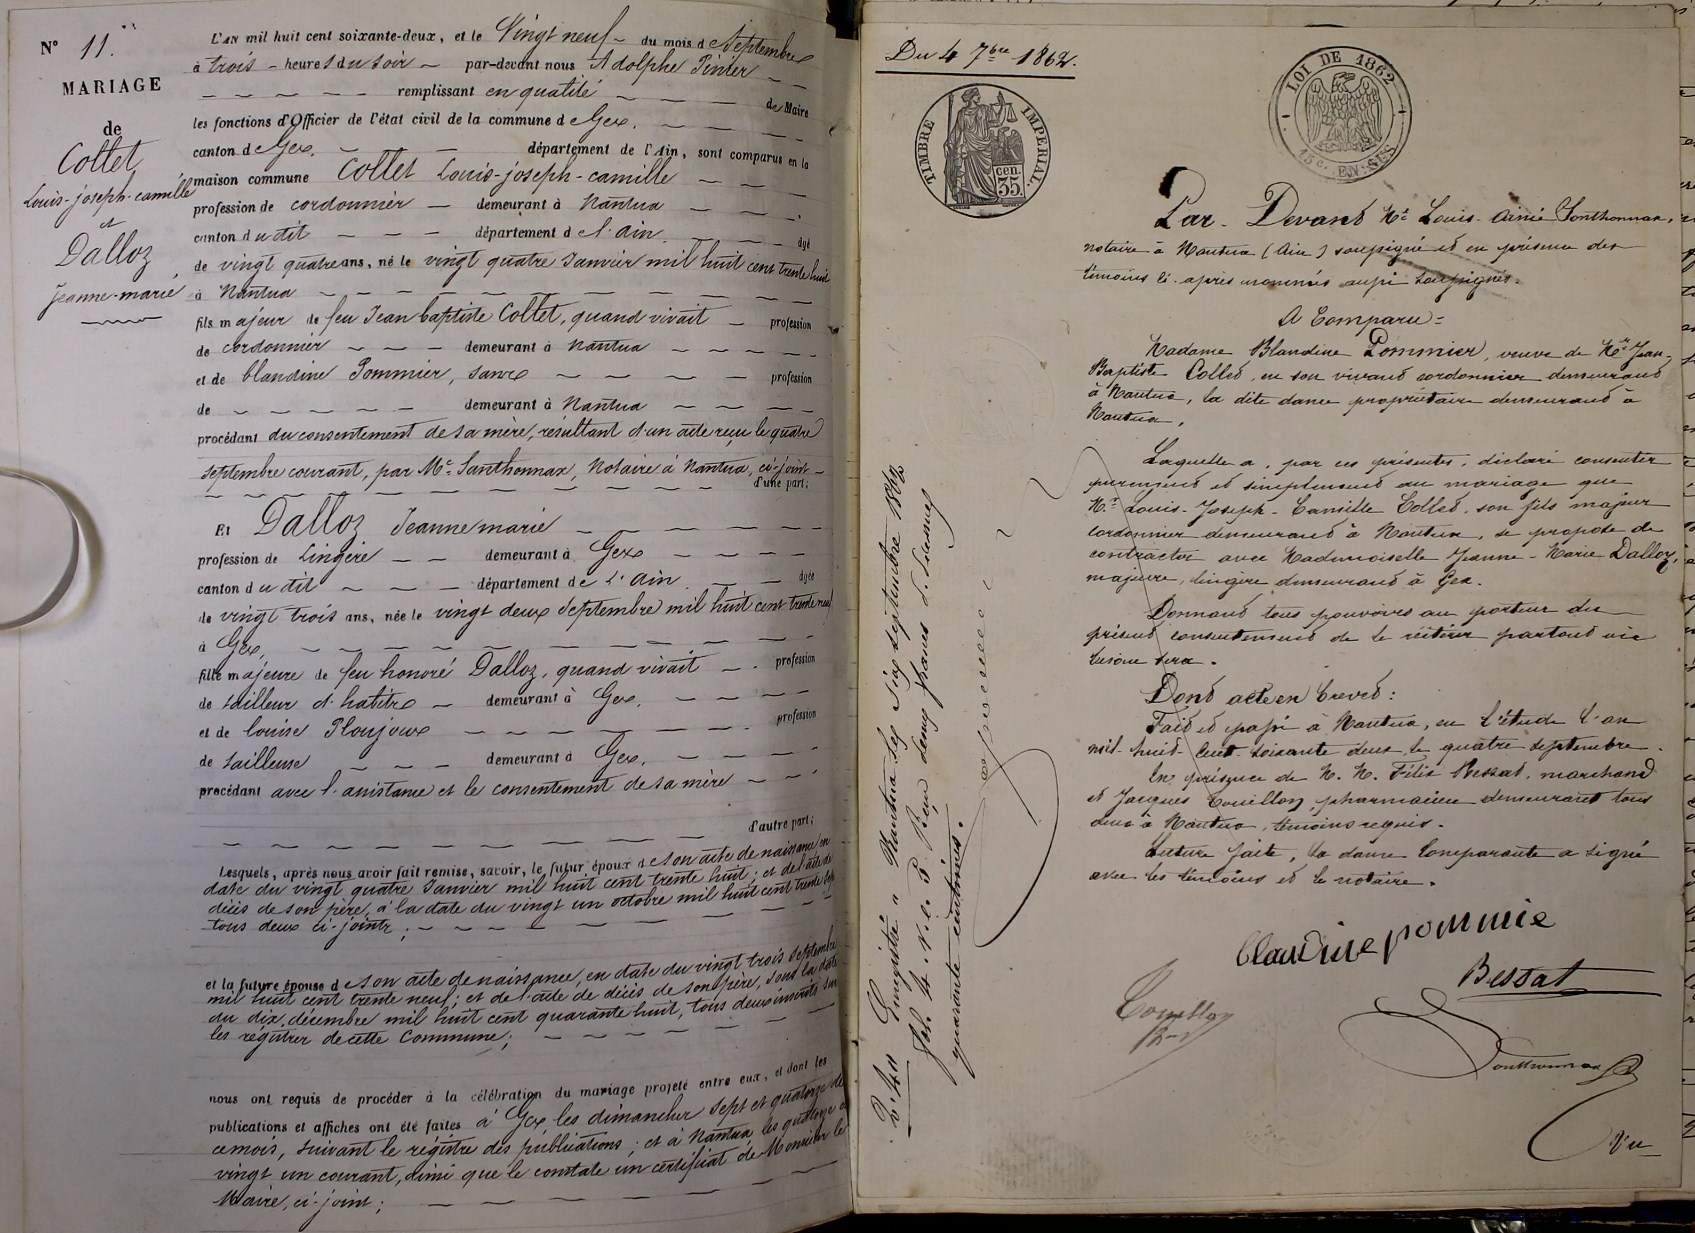 N° 11.
MARIAGE
de
Collet
Louis-joseph-camille
et
Dalloz
Jeanne-marie
L'AN mil huit cent soixante-deux, et le Vingt neuf du mois de Septembre
à trois heures du soir par-devant nous Adolphe Pinier
remplissant en qualité de Maire
les fonctions d'Officier de l'état civil de la commune de Gex.
canton de Gex. département de l'Ain, sont comparus en la
maison commune Collet Louis-joseph-camille
profession de cordonnier demeurant à Nantua
canton dudit département de l'ain. âgé
de vingt quatre ans, né le vingt quatre Janvier mil huit cent trente huit
à Nantua
fils majeur de feu Jean baptiste Collet, quand vivait profession
de cordonnier demeurant à Nantua
et de blandine Pommier, sans profession
de demeurant à Nantua
procédant du consentement de sa mère, résultant d'un acte reçu le quatre
septembre courant, par Me Santhonnax, Notaire à Nantua, ci-joint
d'une part;
Et Dalloz Jeanne marie
profession de Lingère demeurant à Gex
canton dudit département de L'ain âgée
de vingt trois ans, née le vingt deux Septembre mil huit cent trente neuf
à Gex,
fille majeure de feu honoré Dalloz, quand vivait profession
de tailleur d'habits demeurant à Gex.
et de louise Ploujoux profession
de tailleuse demeurant à Gex,
procédant avec l'assistance et le consentement de sa mère
d'autre part;
Lesquels, après nous avoir fait remise, savoir, le futur époux de son acte de naissance en
date du vingt quatre Janvier mil huit cent trente huit; et de l'acte de
décès de son père, à la date du vingt un octobre mil huit cent trente
tous deux ci-joints;
et la future épouse de son acte de naissance, en date du vingt trois Septembre
mil huit cent trente neuf; et de l'acte de décès de son père, sous la date
du dix décembre mil huit cent quarante huit, tous deux inscrits sur
les régistres de cette Commune;
nous ont requis de procéder à la célébration du mariage projeté entre eux, et dont les
publications et affiches ont été faites à Gex, les dimanches sept et quatorze de
ce mois, suivant le régistre des publications; et à Nantua, les quatorze et
vingt un courant, ainsi que le constate un certificat de Monsieur le
Maire, ci-joint;
Du 4 7bre 1862.
TIMBRE IMPÉRIAL.
35 cen.
LOI DE 1862
15 c. EN SUS
Par-Devant Me Louis-Aimé Santhonnax,
notaire à Nantua (Ain) soussigné et en présence des
témoins ci-après nommés aussi soussignés.
A Comparu=
Madame Blandine Pommier, veuve de Mr Jean-
Baptiste Collet, en son vivant cordonnier demeurant
à Nantua, la dite dame propriétaire demeurant à
Nantua,
Laquelle a, par ces présentes, déclaré consentir
purement et simplement au mariage que
Mr Louis-Joseph-Camille Collet, son fils majeur
cordonnier demeurant à Nantua, se propose de
contracter avec Mademoiselle Jeanne-Marie Dalloz,
majeure, lingère demeurant à Gex.
Donnant tous pouvoirs au porteur du
présent consentement de le réitérer partout où
besoin sera.
Dont acte en brevet:
Fait et passé à Nantua, en l'étude l'an
mil-huit-cent-soixante deux le quatre septembre.
En présence de M. M. Félix Bessat, marchand
et Jacques Couillon, pharmacien demeurant tous
deux à Nantua, témoins requis.
Lecture faite, la dame Comparante a signé
avec les témoins et le notaire.
blandine pommié
Bessat
Couillon
Santhonnax
Vu
Enregistré à Nantua le six septembre 1862
fol. 4 Reçu deux francs
quarante centimes.